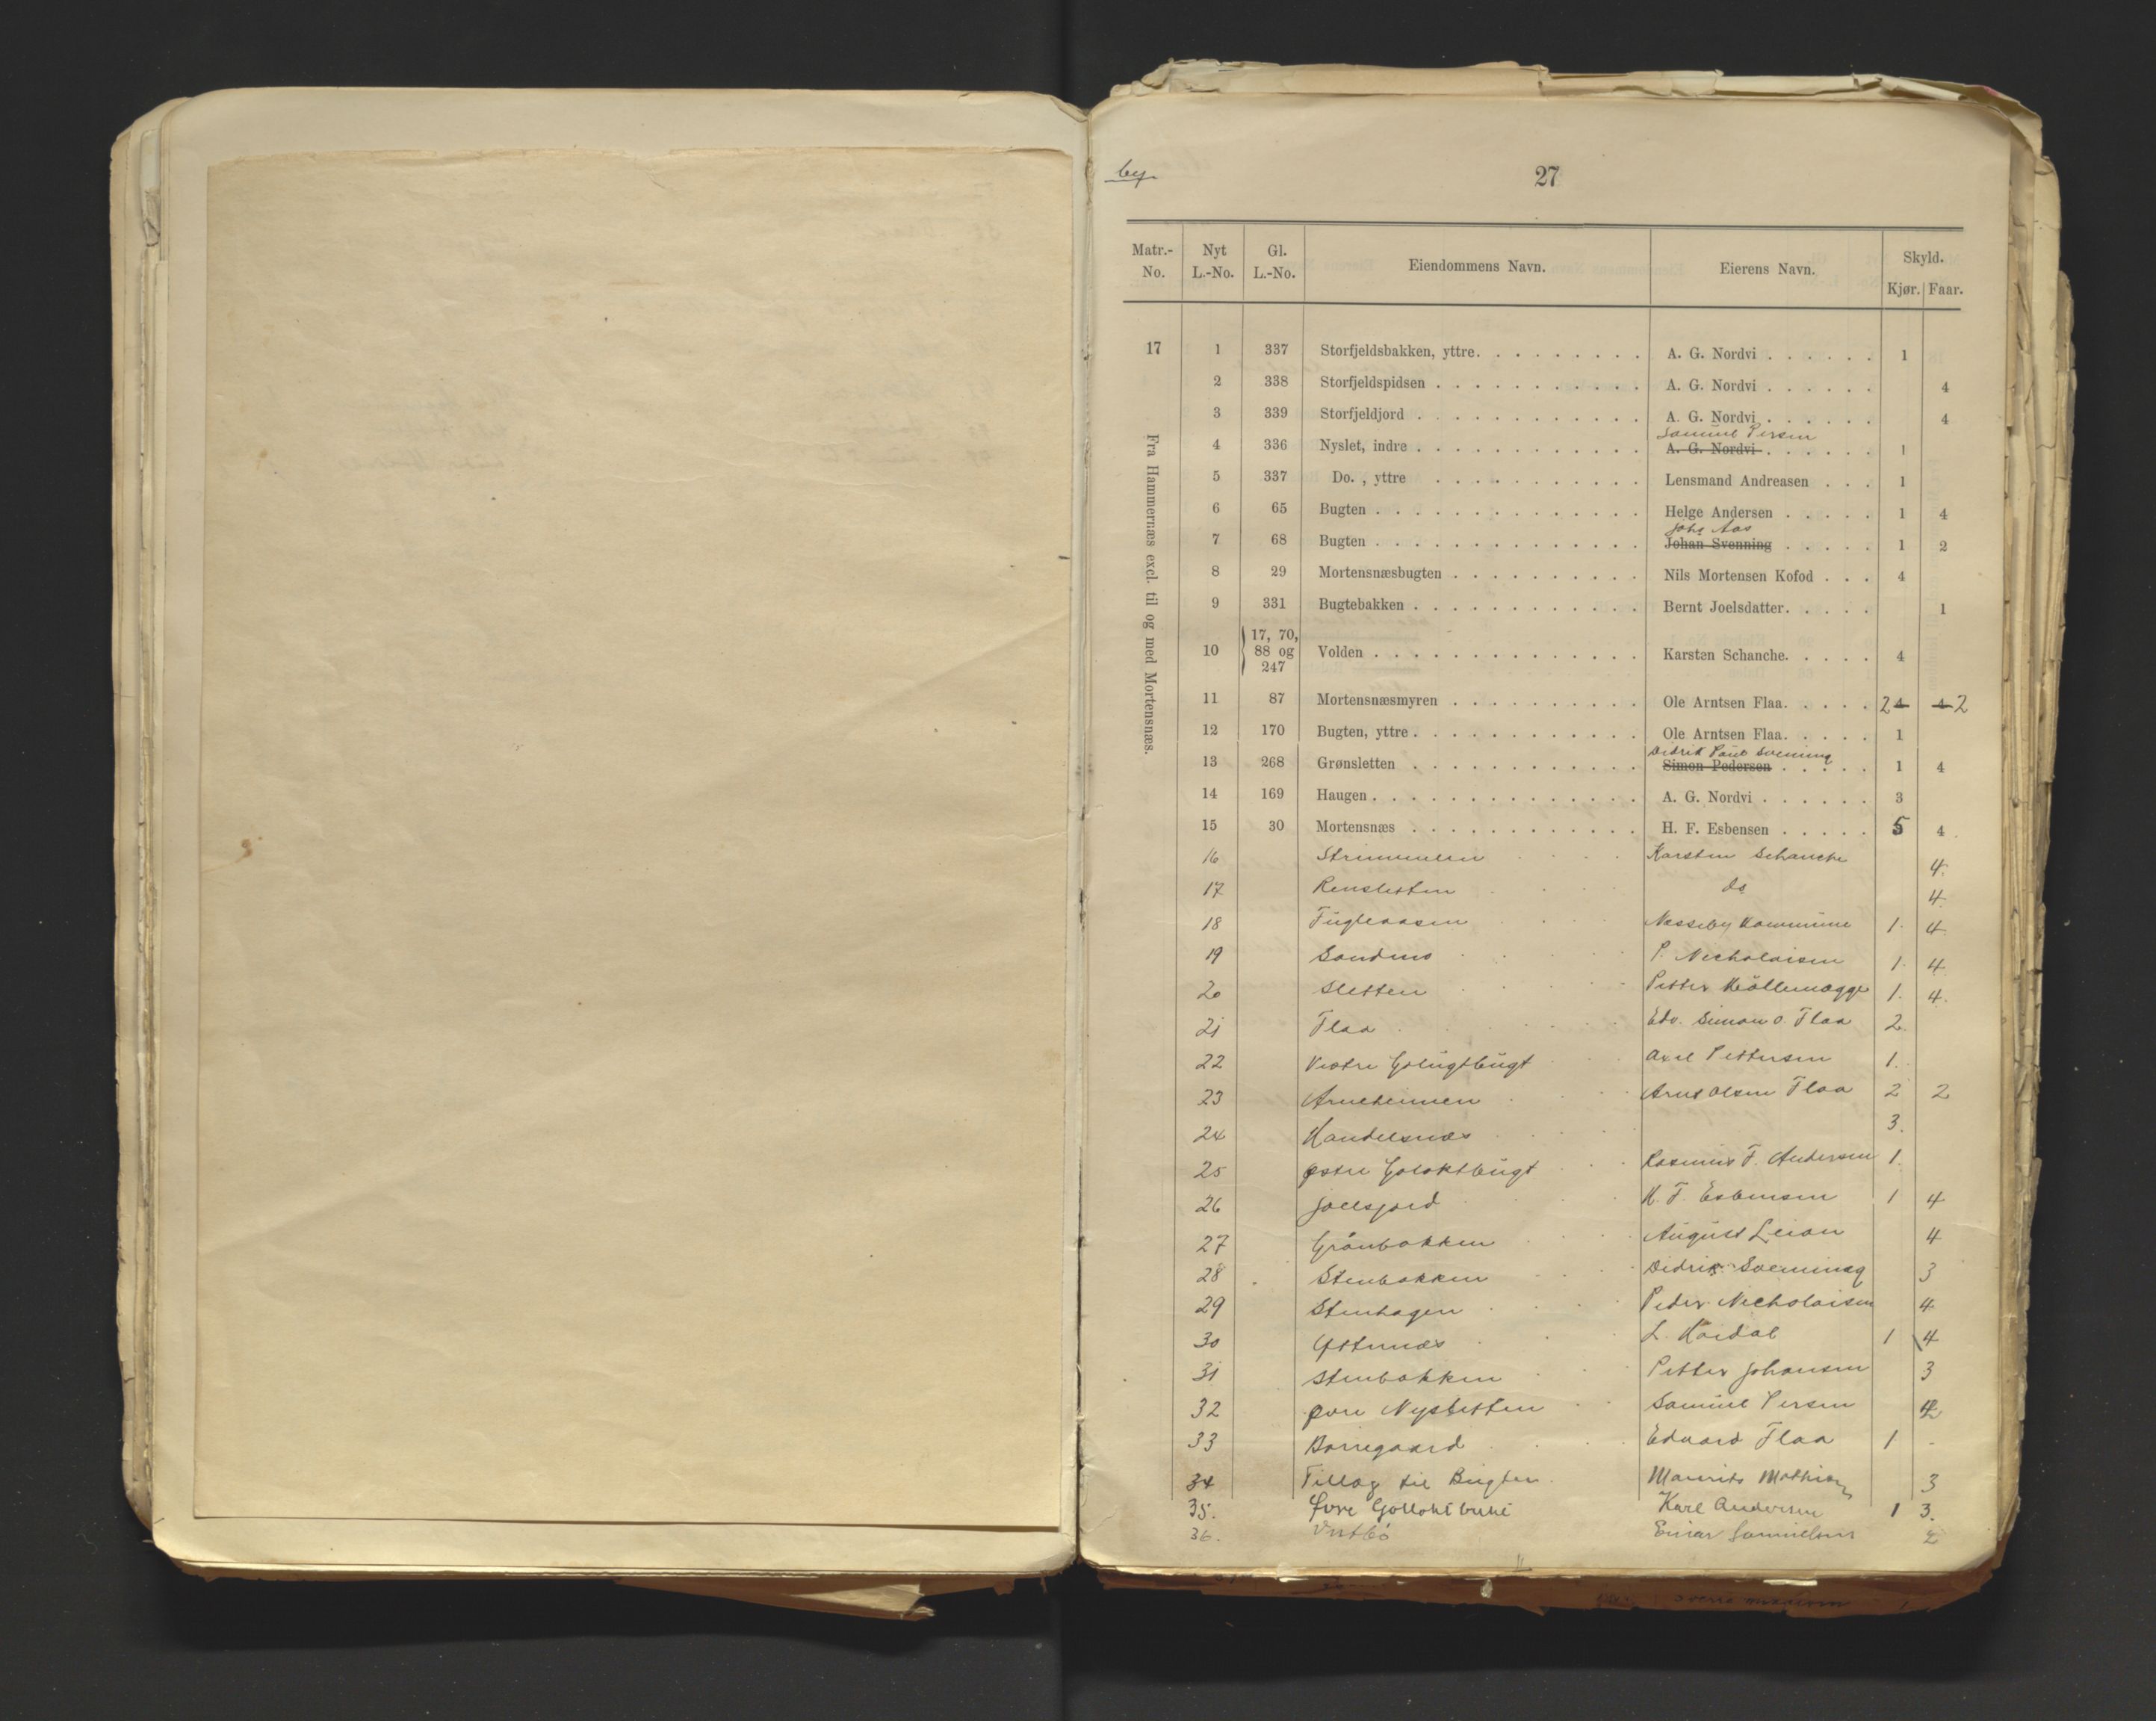 by.
27
Matr.-No. Nyt L.-No. Gl. L.-No. Eiendommens Navn. Eierens Navn. Skyld. Kjør. Faar.
Fra Hammernæs excl. til og med Mortensnæs.
17 1 337 Storfjeldsbakken, yttre. A. G. Nordvi 1
2 338 Storfjeldspidsen A. G. Nordvi 4
3 339 Storfjeldjord A. G. Nordvi 4
Samuel Persen
4 336 Nyslet, indre A. G. Nordvi 1
5 337 Do. , yttre Lensmand Andreasen 1
6 65 Bugten Helge Andersen 1 4
Johs Aas
7 68 Bugten Johan Svenning 1 2
8 29 Mortensnæsbugten Nils Mortensen Kofod 4
9 331 Bugtebakken Bernt Joelsdatter. 1
10 17, 70, 88 og 247 Volden Karsten Schanche. 4
11 87 Mortensnæsmyren Ole Arntsen Flaa. 2 4 4 2
12 170 Bugten, yttre Ole Arntsen Flaa. 1
Didrik Paul Svenning
13 268 Grønsletten Simon Pedersen 1 4
14 169 Haugen A. G. Nordvi 3
15 30 Mortensnæs H. F. Esbensen 5 4
16 Strimmelen Karsten Schanche 4.
17 Rensletten do 4.
18 Fugleaasen Nesseby Kommune 1. 4.
19 Sandmo P. Nicholaisen 1. 4.
20 Sletten Petter 1. 4.
21 Flaa Edv. Simon O. Flaa 2.
22 Vestre Axel Pettersen 1.
23 Arneheimen Arnt Olsen Flaa 2 2
24 Handelsnæs 3.
25 Østre Rasmus F. Andersen 1.
26 Joelsjord H. F. Esbensen 1 4
27 Grönbakken August 4
28 Stenbakken Didrik Svenning 3
29 Stenhagen Peder Nicholaisen 4
30 L. 1 4
31 Stenbakken Petter Johansen 3
32 Øvre Nysletten Samuel Persen
33 Edvard Flaa 1
34 Tillæg til Bugten Maurits 3
35. Øvre Karl Andersen 1 3.
36. Einar Samuelsen 2